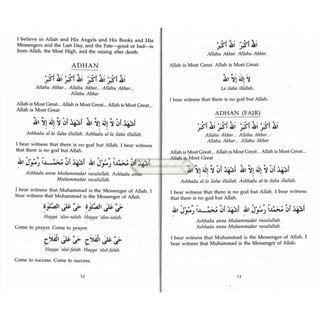 I believe in Allah and His Angels and His Books and His
Messengers and the Last Day, and the Fate—good or bad—is
from Allah, the Most High, and the raising after death.
ADHAN
اَللهُ أَكْبَرُ اَللهُ أَكْبَرُ اَللهُ أَكْبَرُ اَللهُ أَكْبَرُ
Allahu Akbar.. Allahu Akbar.. Allahu Akbar..
Allahu Akbar
Allah is Most Great.. Allah is Most Great.. Allah is Most
Great.. Allah is Most Great
أَشْهَدُ أَنْ لَا إِلٰهَ إِلَّا اللهُ أَشْهَدُ أَنْ لَا إِلٰهَ إِلَّا اللهُ
Ashhadu al-la ilaha illallah. Ashhadu al-la ilaha illallah.
I bear witness that there is no god but Allah. I bear
witness that there is no god but Allah.
أَشْهَدُ أَنَّ مُحَمَّدًا رَسُوْلُ اللهِ أَشْهَدُ أَنَّ مُحَمَّدًا رَسُوْلُ اللهِ
Ashhadu anna Muhammadar rasulullah.
Ashhadu anna Muhammadar rasulullah.
I bear witness that Muhammad is the Messenger of Allah. I
bear witness that Muhammad is the Messenger of Allah.
حَيَّ عَلَى الصَّلٰوةِ حَيَّ عَلَى الصَّلٰوةِ
Hayya 'alas-salah. Hayya 'alas-salah.
Come to prayer. Come to prayer.
حَيَّ عَلَى الْفَلَاحِ حَيَّ عَلَى الْفَلَاحِ
Hayya 'alal-falah. Hayya 'alal-falah.
Come to success. Come to success.
12
اَللهُ أَكْبَرُ اَللهُ أَكْبَرُ
Allahu Akbar.. Allahu Akbar.
Allah is Most Great. Allah is Most Great.
لَا إِلٰهَ إِلَّا اللهُ
La ilaha illallah.
I bear witness that there is no god but Allah.
ADHAN (FAJR)
اَللهُ أَكْبَرُ اَللهُ أَكْبَرُ اَللهُ أَكْبَرُ اَللهُ أَكْبَرُ
Allahu Akbar.. Allahu Akbar.. Allahu Akbar..
Allahu Akbar
Allah is Most Great.. Allah is Most Great.. Allah is Most
Great.. Allah is Most Great
أَشْهَدُ أَنْ لَا إِلٰهَ إِلَّا اللهُ أَشْهَدُ أَنْ لَا إِلٰهَ إِلَّا اللهُ
Ashhadu al-la ilaha illallah. Ashhadu al-la ilaha illallah.
I bear witness that there is no god but Allah. I bear
witness that there is no god but Allah.
أَشْهَدُ أَنَّ مُحَمَّدًا رَسُوْلُ اللهِ أَشْهَدُ أَنَّ مُحَمَّدًا رَسُوْلُ اللهِ
Ashhadu anna Muhammadar rasulullah.
Ashhadu anna Muhammadar rasulullah.
I bear witness that Muhammad is the Messenger of Allah. I
bear witness that Muhammad is the Messenger of Allah.
13